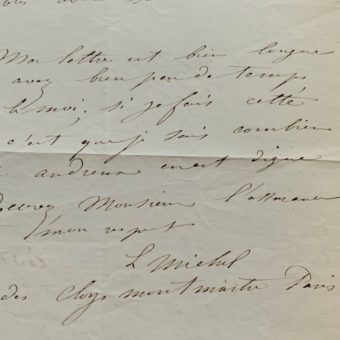 Ma lettre est bien longue
avez bien peu de temps
à moi. si je fais cette
c'est que je sais combien
andrieux en est digne
Recevez Monsieur l'assurance
de mon respect
L Michel
des Cloys montmartre Paris